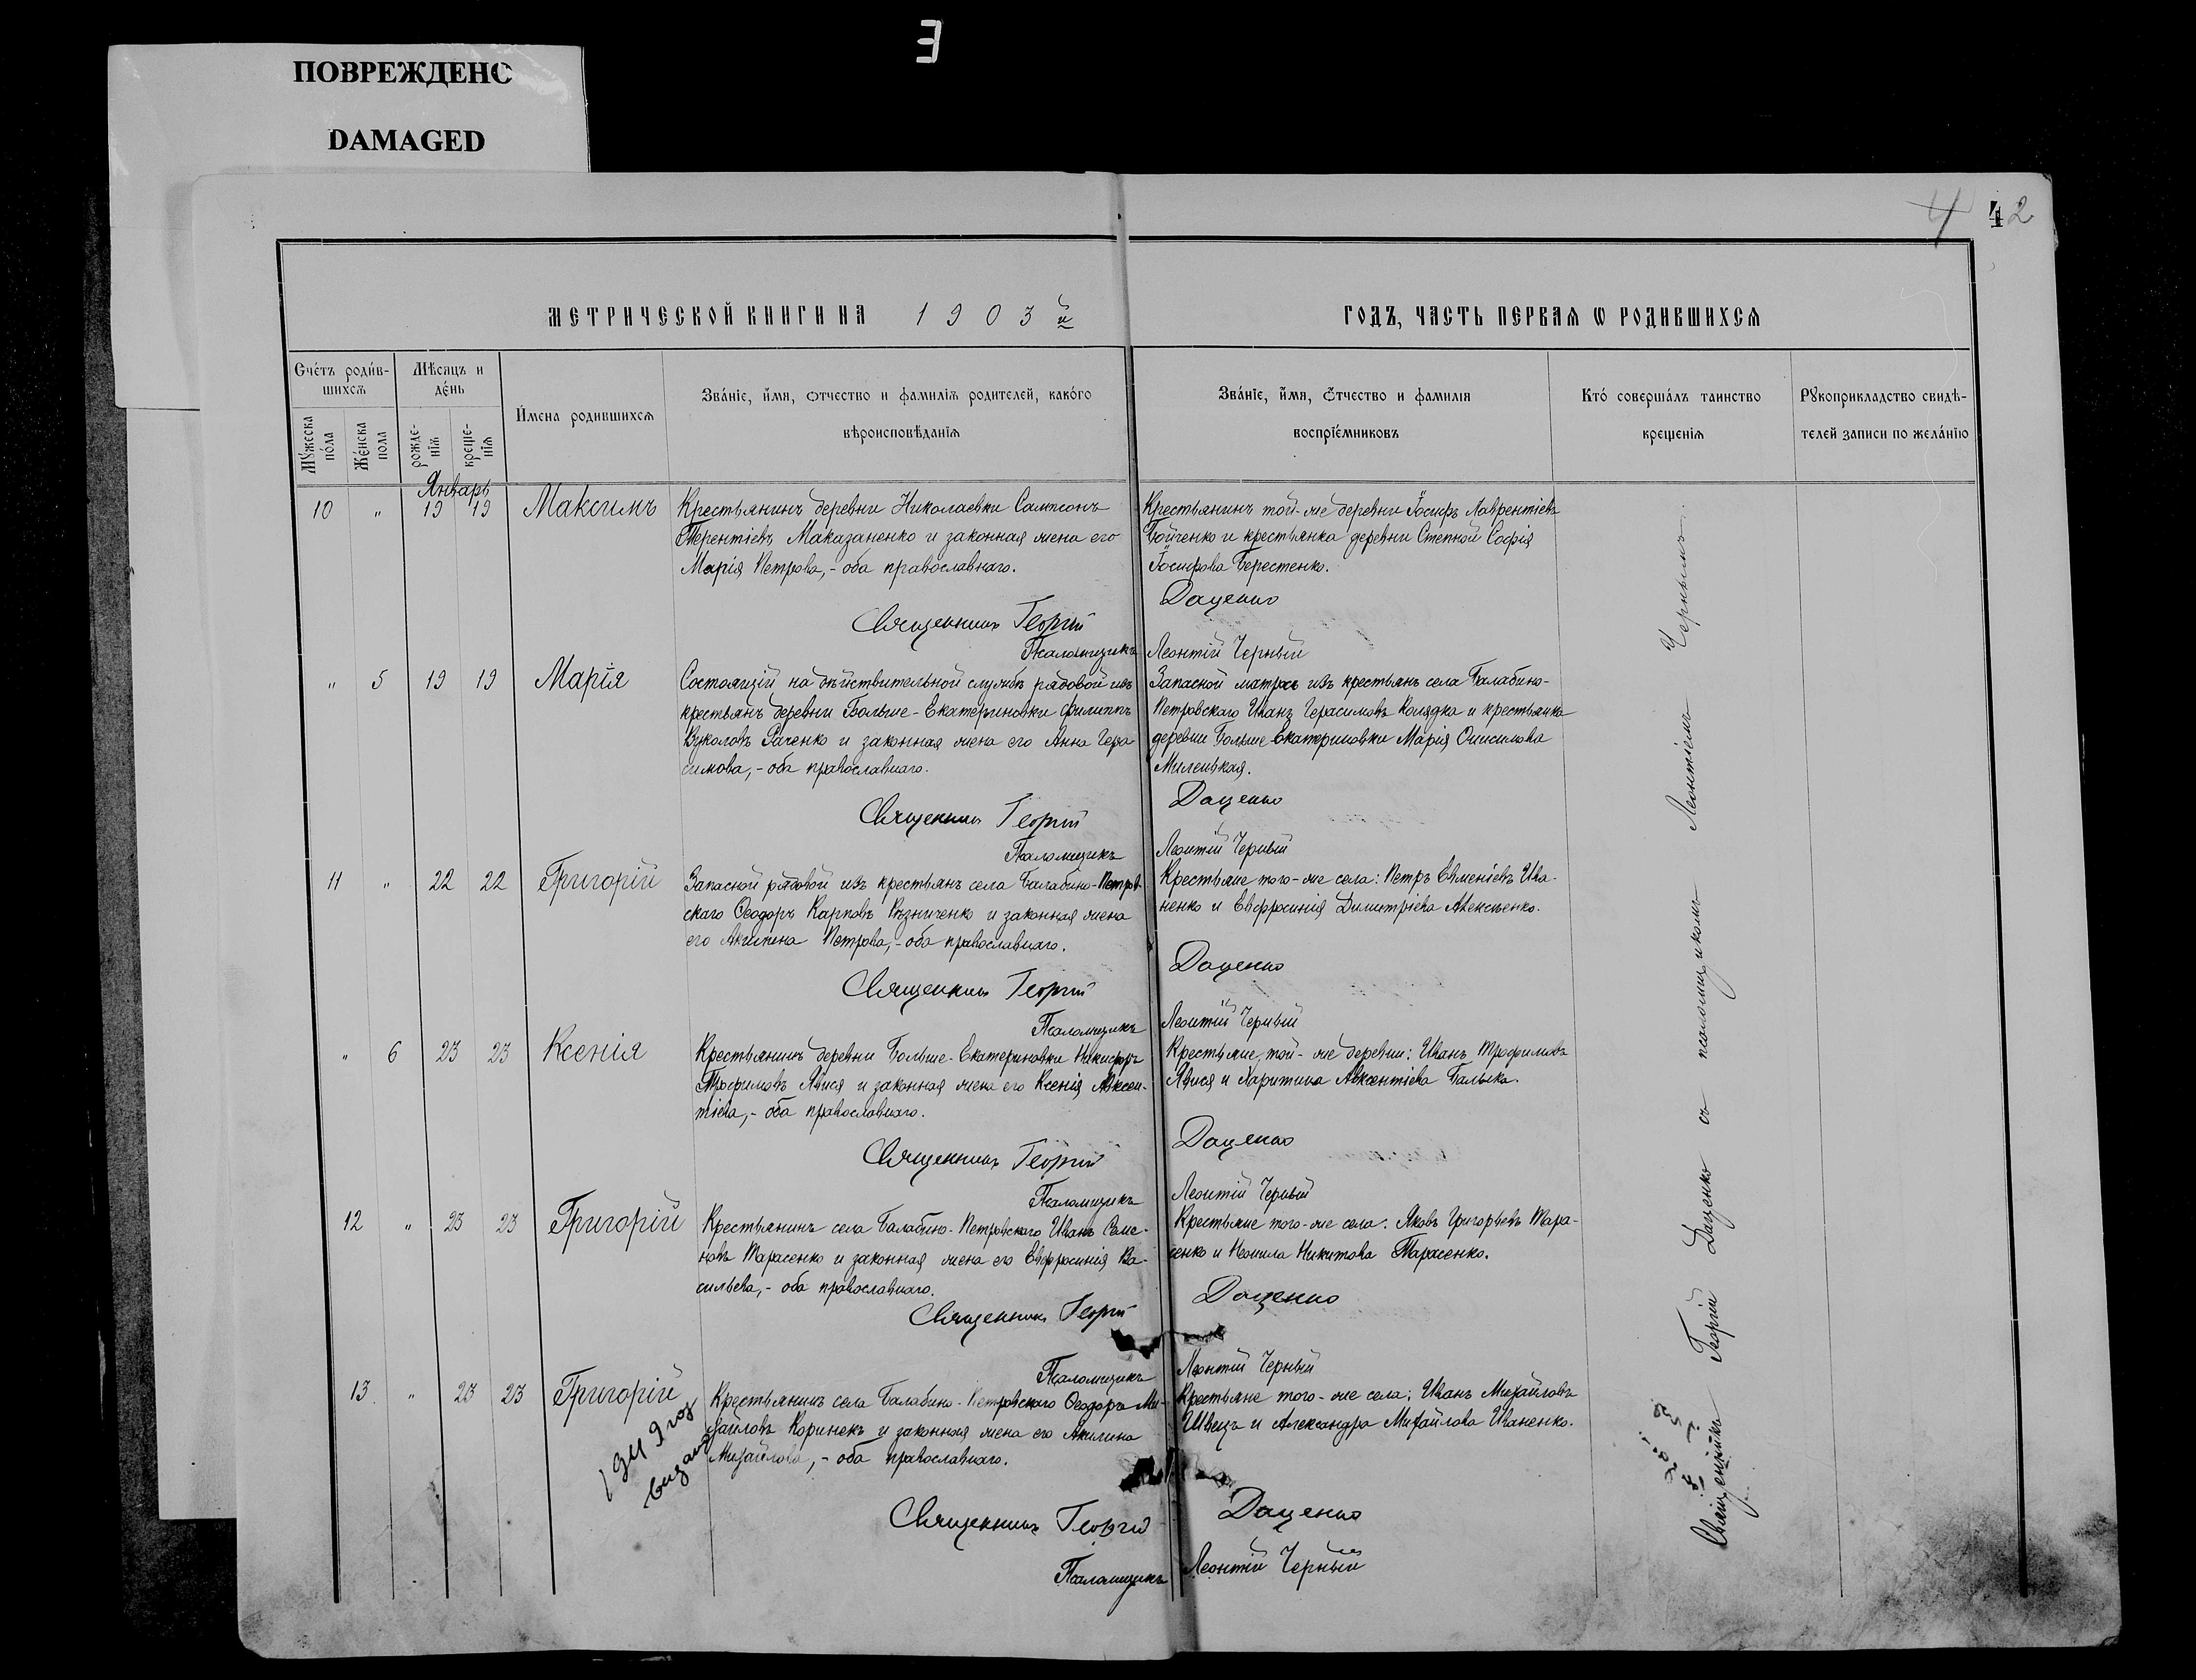 ПОВРЕЖДЕНО
DAMAGED
42
МЕТРИЧЕСКОЙ КНИГИ НА 1903й ГОДЪ, ЧАСТЬ ПЕРВАЯ Ѡ РОДИВШИХСЯ
Счетъ родившихся
Мѣсяцъ и день
Мужеска пола
Женска пола
рожденія
крещенія
Имена родившихся
Званіе, имя, отчество и фамилія родителей, какого вѣроисповѣданія
Званіе, имя, отчество и фамилія воспріемниковъ
Кто совершалъ таинство крещенія
Рукоприкладство свидѣтелей записи по желанію
Январь
10 " 19 19 Максимъ
Крестьянинъ деревни Николаевки Сампсонъ
Терентіевъ Маказаненко и законная жена его
Марія Петрова,- оба православнаго.
Крестьянинъ той-же деревни Іосифъ Лаврентіевъ
Бойченко и крестьянка деревни Степной Софія
Іосифова Берестенко.
Священникъ Георгій Даценко
Псаломщикъ Леонтій Черный
" 5 19 19 Марія
Состоящій на дѣйствительной службѣ рядовой изъ
крестьянъ деревни Больше-Екатериновки Филиппъ
Вуколовъ Раченко и законная жена его Анна Гера
симова,- оба православнаго.
Запасной матросъ изъ крестьянъ села Балабино-
Петровскаго Иванъ Герасимовъ Колядка и крестьянка
деревни Больше Екатериновки Марія Онисимова
Милецкая.
Священникъ Георгій Даценко
Псаломщикъ Леонтій Черный
11 " 22 22 Григорій
Запасной рядовой изъ крестьянъ села Балабино-Петров-
скаго Ѳеодоръ Карповъ Рѣзниченко и законная жена
его Акилина Петрова,- оба православнаго.
Крестьяне того-же села: Петръ Евменіевъ Ива-
ненко и Евфросинія Димитріева Алексѣенко.
Священникъ Георгій Даценко
Псаломщикъ Леонтій Черный
" 6 23 23 Ксенія
Крестьянинъ деревни Больше-Екатериновки Никифоръ
Трофимовъ Явися и законная жена его Ксенія Авксен-
тіева,- оба православнаго.
Крестьяне, той-же деревни: Иванъ Трофимовъ
Явися и Харитина Авксентіева Балыка.
Священникъ Георгій Даценко
Псаломщикъ Леонтій Черный
12 " 23 23 Григорій
Крестьянинъ села Балабино-Петровскаго Иванъ Семе-
новъ Тарасенко и законная жена его Евфросинія Ва-
сильева,- оба православнаго.
Крестьяне того-же села: Яковъ Григорьевъ Тара-
сенко и Неонила Никитова Тарасенко.
Священникъ Георгій Даценко
Псаломщикъ Леонтій Черный
13 " 23 23 Григорій
Крестьянинъ села Балабино-Петровскаго Ѳеодоръ Ми-
хайловъ Коринекъ и законная жена его Акилина
Михайлова,- оба православнаго.
Крестьяне того-же села: Иванъ Михайловъ
Швецъ и Александра Михайлова Иваненко.
Священникъ Георгій Даценко
Псаломщикъ Леонтій Черный
Священникъ Георгій Даценко съ псаломщикомъ Леонтіемъ Чернымъ.